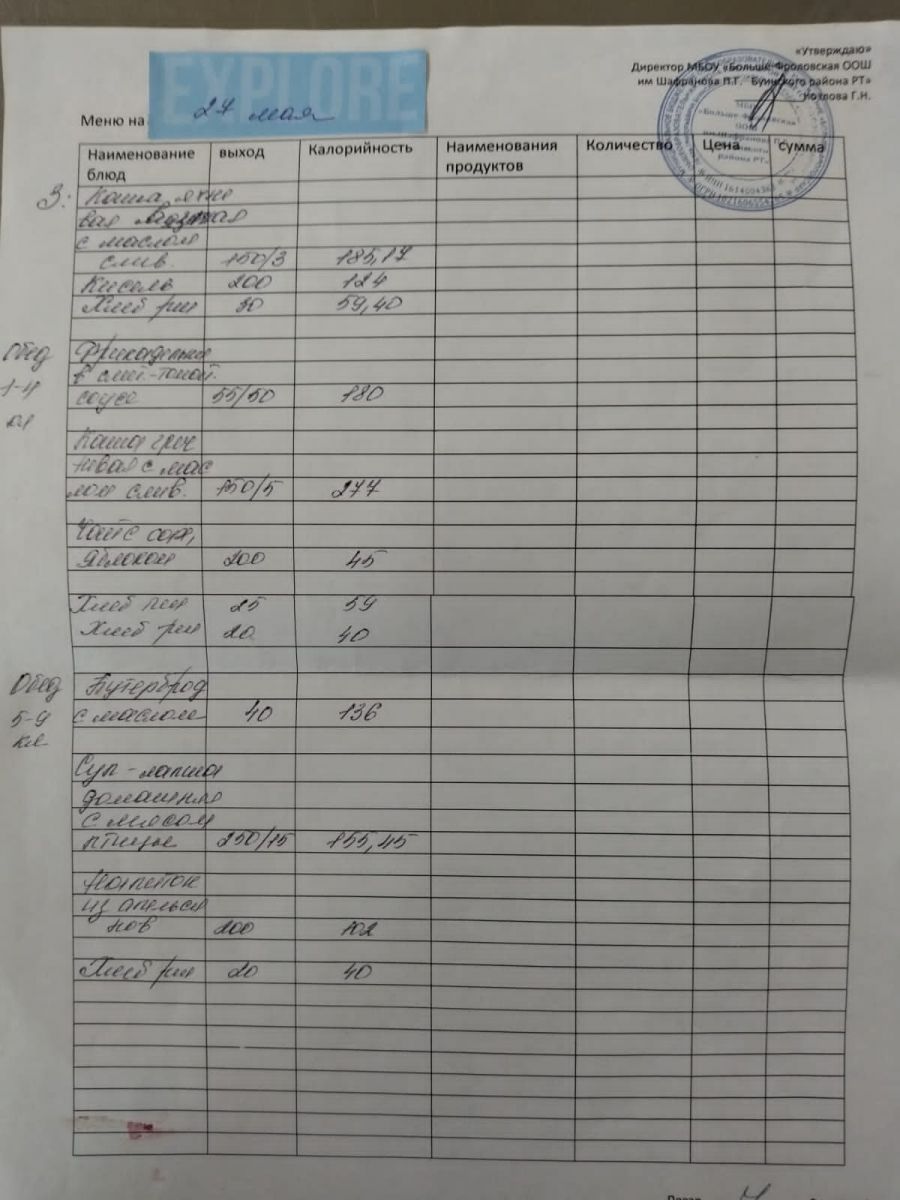 «Утверждаю»
Директор МБОУ «Больше-Фроловская ООШ
им Шафранова П.Г. Буинского района РТ»
Козлова Г.Н.
EXPLORE
Меню на 27 мая
Наименование блюд выход Калорийность Наименования продуктов Количество Цена сумма
З: Каша ячне
вая вязкая
с маслом
слив. 150/3 185,17
Кисель 200 124
Хлеб рж 30 59,40
Обед Фрикадельки
в смет-томат.
1-4 соусе 55/50 180
кл
Каша греч
невая с мас
лом слив. 150/5 277
Чай с
яблоком 200 45
Хлеб пш 25 59
Хлеб рж 20 40
Обед Бутерброд
5-9 с маслом 40 136
кл
Суп-лапша
домашняя
с мясом
птицы 250/15 155,45
Напиток
из апельси
нов 200 102
Хлеб рж 20 40